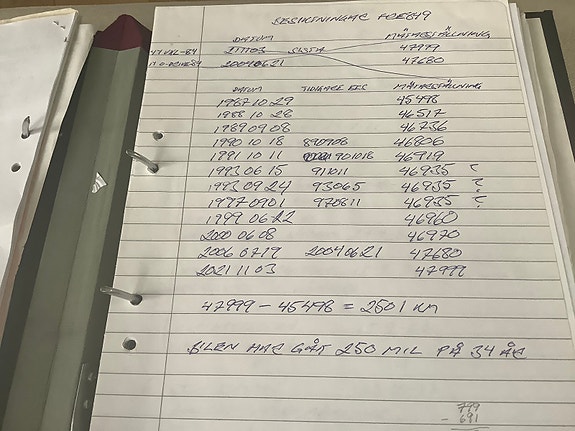 BESIKTNINGAR FOE849
DATUM MÄTARSTÄLLNING
211103 SISTA 47999
20040621 47680
DATUM TIDIGARE BES MÄTARSTÄLLNING
1987 10 29 45498
1988 10 28 46517
1989 09 08 46736
1990 10 18 890908 46806
1991 10 11 901018 46919
1993 06 15 911011 46935 ?
1993 09 24 93065 46935 ?
1997 09 01 970811 46935 ?
1999 06 22 46960
2000 06 08 46970
2006 07 19 20040621 47680
2021 11 03 47999
47999 - 45498 = 2501 km
BILEN HAR GÅTT 250 MIL PÅ 34 ÅR
799
- 691